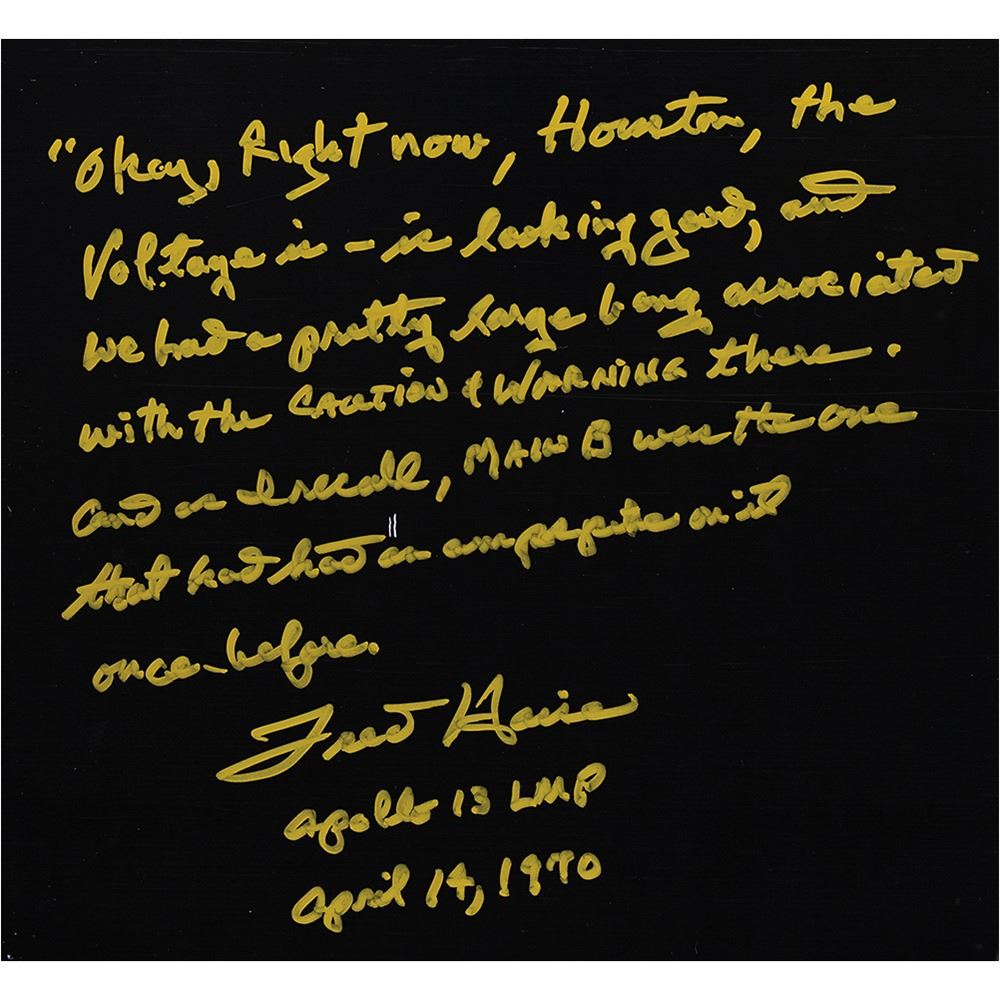 "Okay, Right now, Houston, the
Voltage is - is looking good, and
we had a pretty large bang associated
with the CAUTION & WARNING there.
and as I recall, MAIN B was the one
that had had an amp spike on it
once before.
Fred Haise
Apollo 13 LMP
April 14, 1970